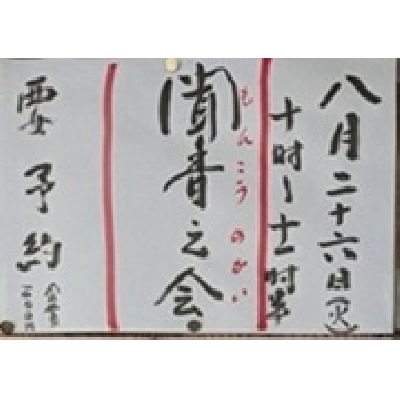 八月二十六日(火)
十時〜十一時半
もんこうのかい
聞香之会
要予約
会費